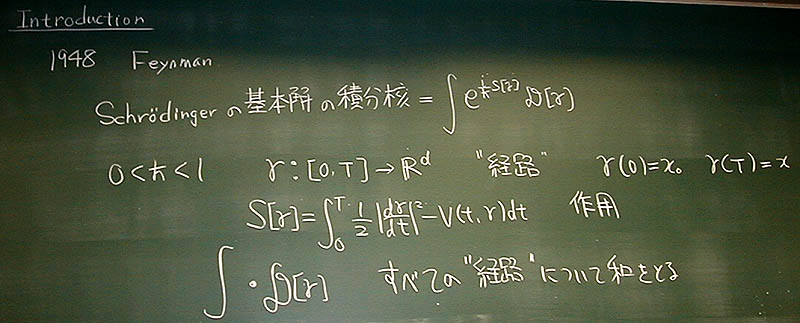 Introduction
1948 Feynman
Schrödinger の基本解の積分核 = ∫ e^{\frac{i}{ℏ}S[γ]} 𝒟[γ]
0<ℏ<1 γ:[0,T]→ℝ^d "経路" γ(0)=x₀ γ(T)=x
S[γ]=∫_0^T \frac{1}{2}|\frac{dγ}{dt}|²-V(t,γ)dt 作用
∫・𝒟[γ] すべての"経路"について和をとる